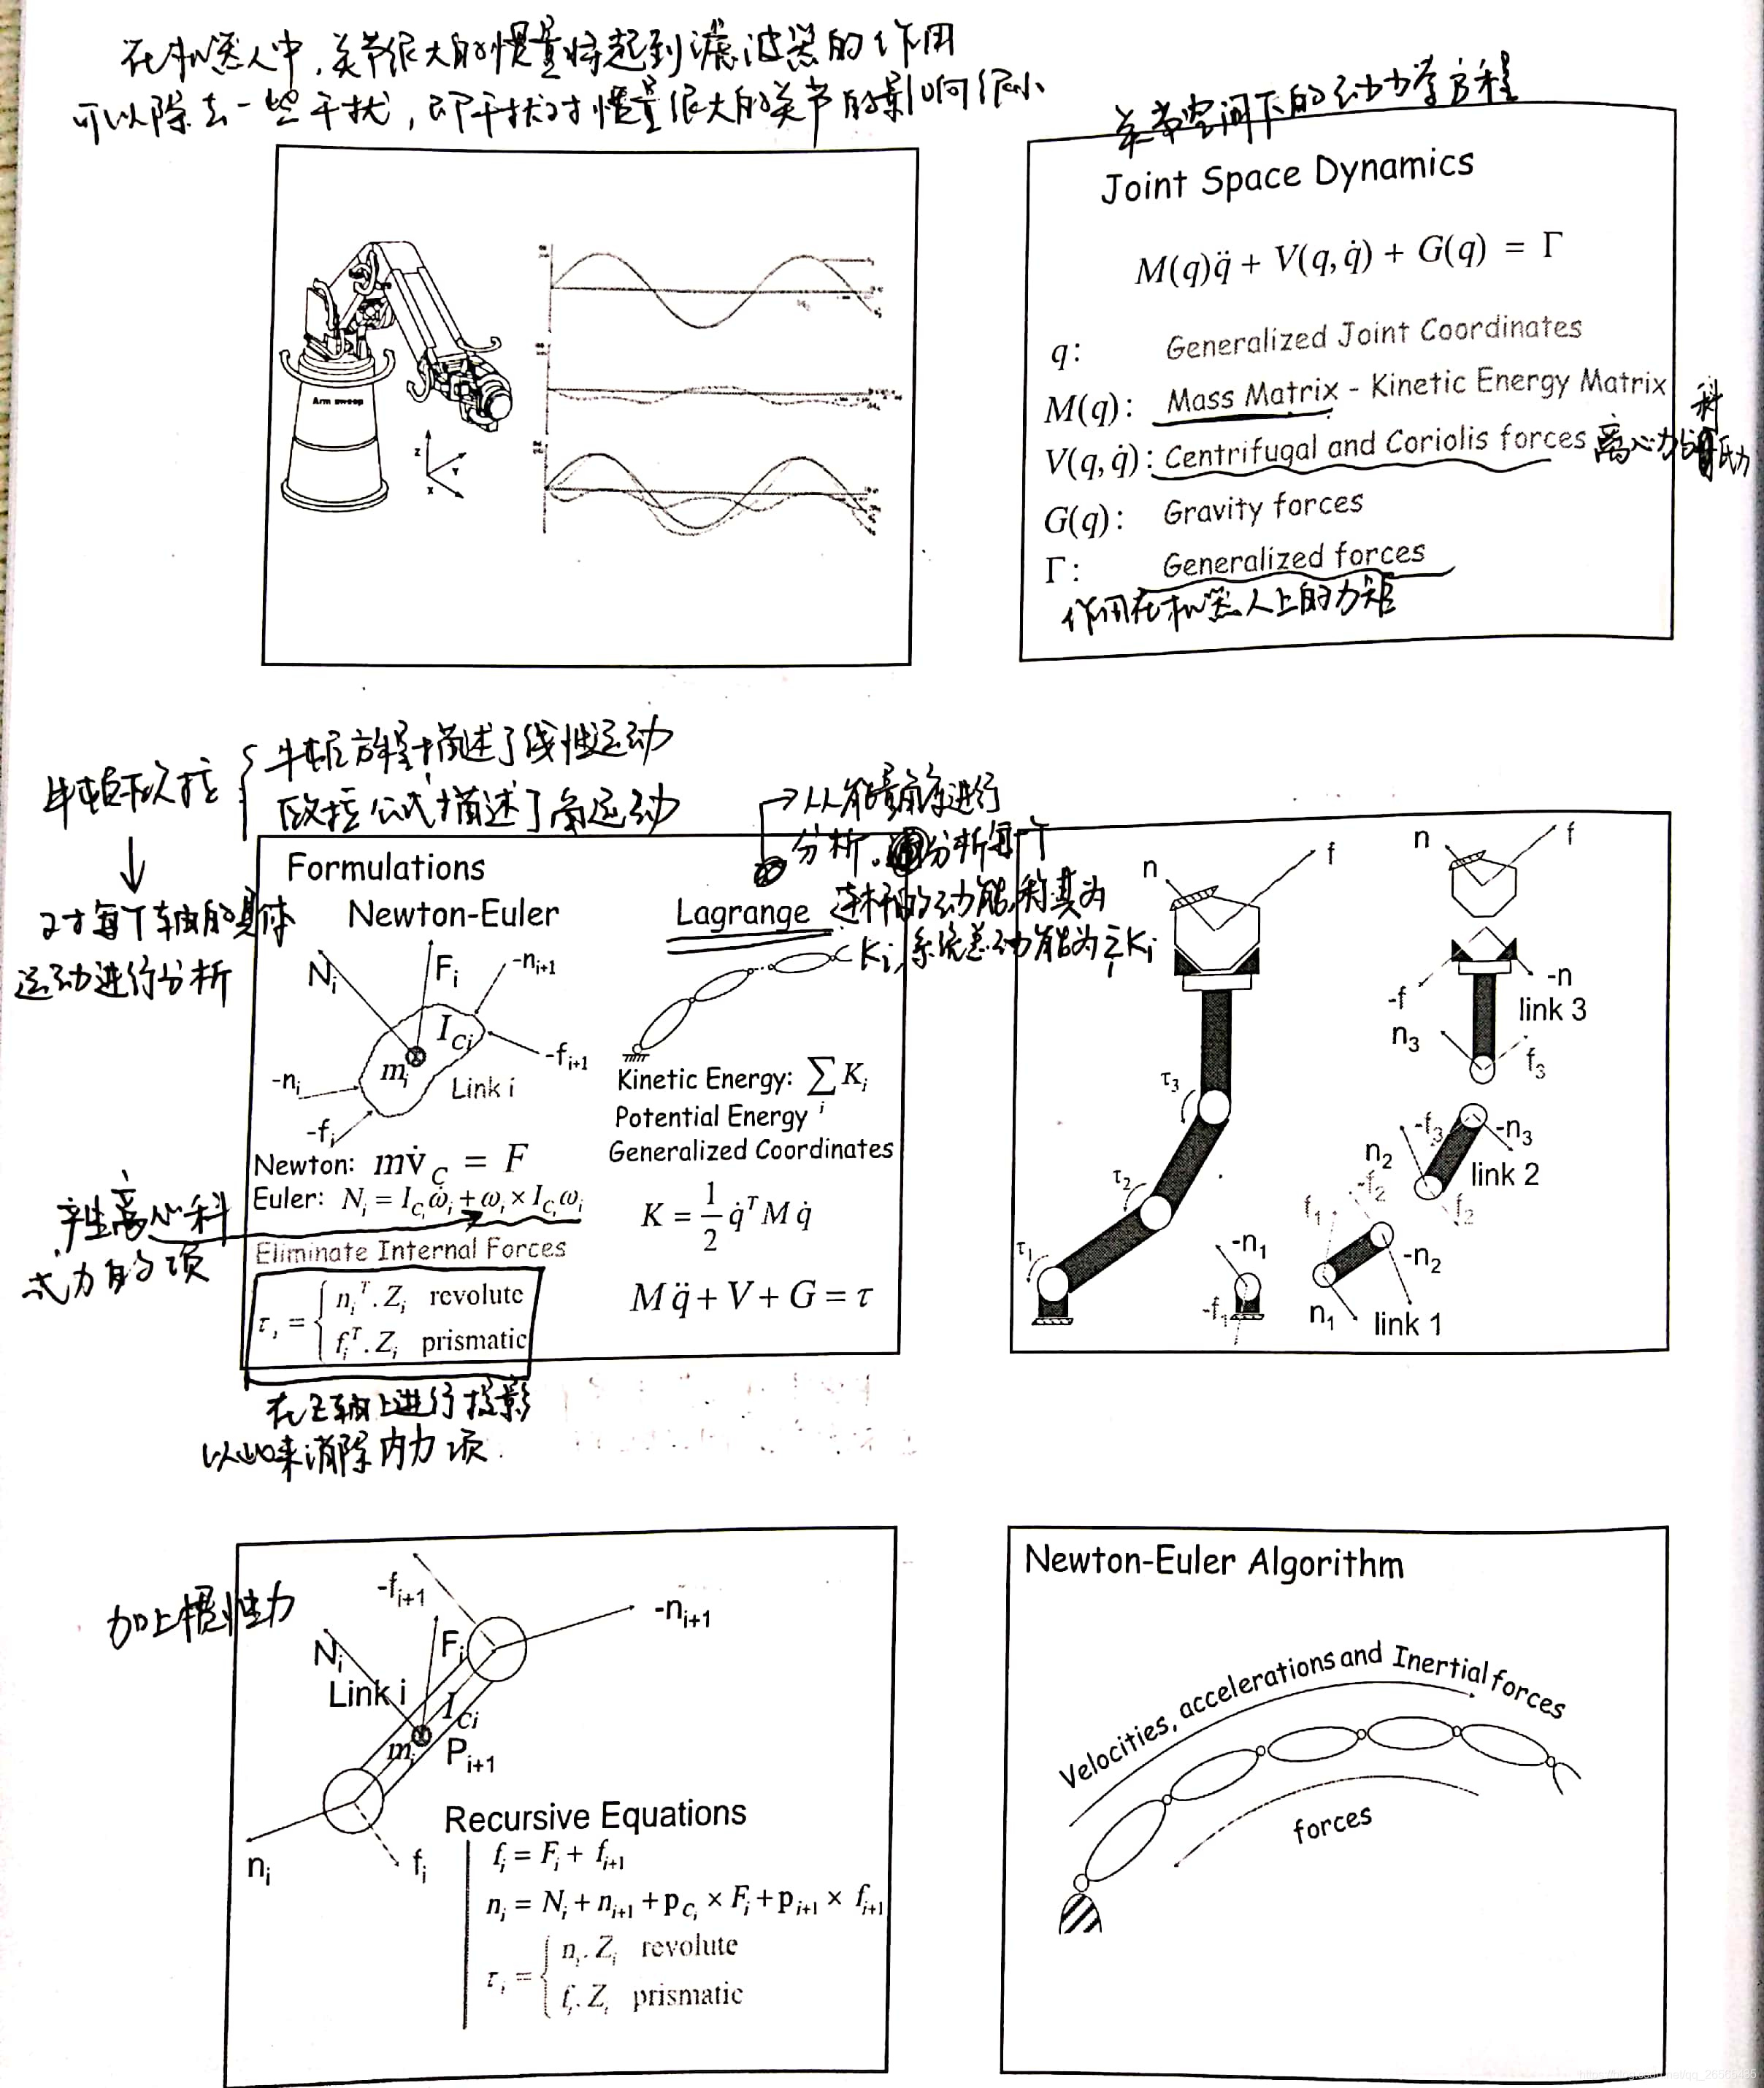 在机器人中,关节很大的惯量将起到滤波器的作用
可以除去一些干扰,即干扰对惯量很大的关节的影响很小
Arm sweep
Z
Y
X
关节空间下的动力学方程
Joint Space Dynamics
M(q)q̈ + V(q, q̇) + G(q) = Γ
q: Generalized Joint Coordinates
M(q): Mass Matrix - Kinetic Energy Matrix
V(q, q̇): Centrifugal and Coriolis forces 离心力与科氏力
G(q): Gravity forces
Γ: Generalized forces
作用在机器人上的力矩
牛顿欧拉
牛顿方程描述了线性运动
欧拉公式描述了角运动
对每个轴的具体
运动进行分析
从能量角度进行
分析。分析每个
连杆的动能,称其为
Ki,系统总动能为∑i Ki
Formulations
Newton-Euler
Ni
Fi
-ni+1
ICi
mi
-fi+1
-ni
Link i
-fi
Newton: mv̇C = F
Euler: Ni = ICi ω̇i + ωi × ICi ωi
Eliminate Internal Forces
τi = { niT . Zi revolute
fiT . Zi prismatic
产生离心科
氏力的项
在Z轴上进行投影
以此来消除内力项.
Lagrange
Kinetic Energy: ∑i Ki
Potential Energy
Generalized Coordinates
K = 1/2 q̇T M q̇
M q̈ + V + G = τ
n
f
τ3
τ2
τ1
n
f
-f
-n
link 3
n3
f3
-f3
-n3
n2
link 2
-f2
f2
f1
-n1
-n2
-f1
n1
link 1
加上惯性力
-fi+1
-ni+1
Ni
Fi
Link i
ICi
mi
Pi+1
ni
fi
Recursive Equations
fi = Fi + fi+1
ni = Ni + ni+1 + pCi × Fi + pi+1 × fi+1
τi = { ni . Zi revolute
fi . Zi prismatic
Newton-Euler Algorithm
Velocities, accelerations and Inertial forces
forces